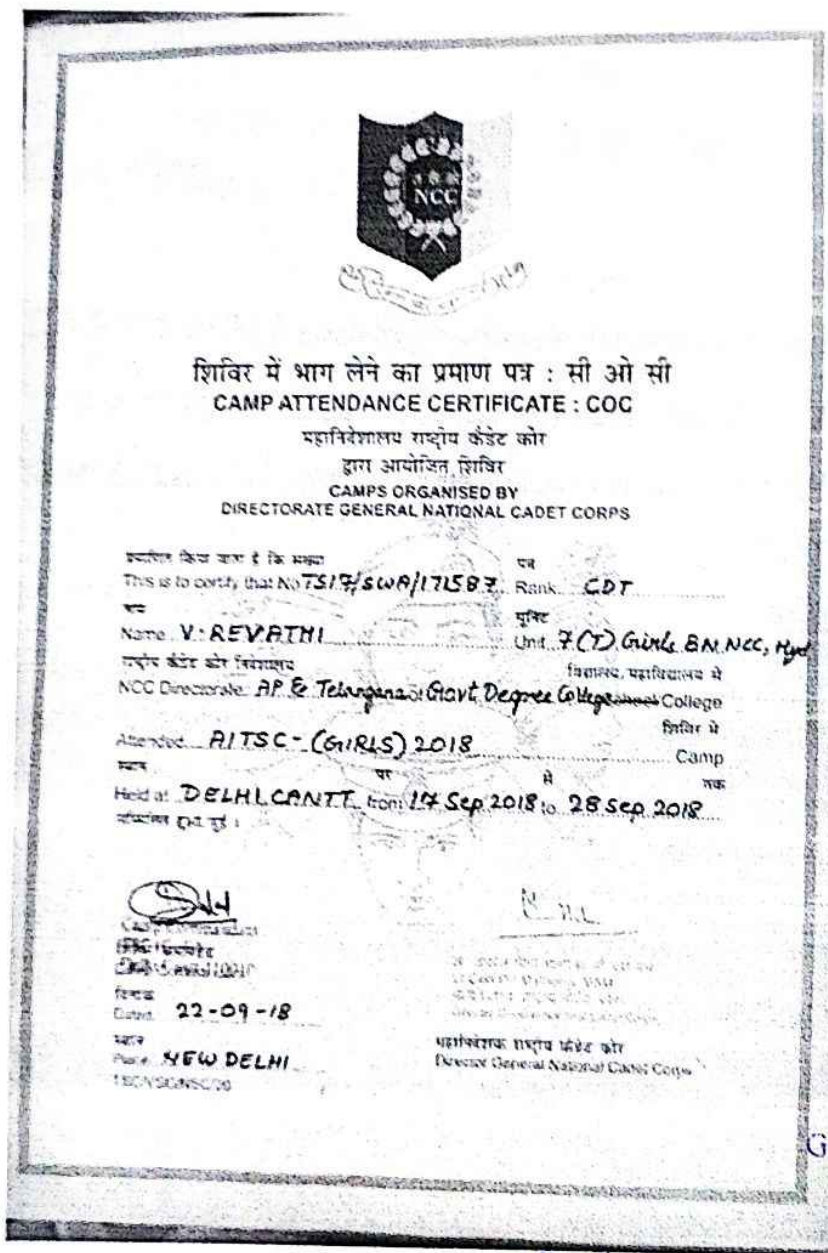 NCC
शिविर में भाग लेने का प्रमाण पत्र : सी ओ सी
CAMP ATTENDANCE CERTIFICATE : COC
महानिदेशालय राष्ट्रीय कैडेट कोर
द्वारा आयोजित शिविर
CAMPS ORGANISED BY
DIRECTORATE GENERAL NATIONAL CADET CORPS
प्रमाणित किया जाता है कि पद
This is to certify that No TS17/SWA/171587 Rank CDT
नाम यूनिट
Name V. REVATHI Unit 7(T) Girls BN NCC, Hyd
राष्ट्रीय कैडेट कोर निदेशालय विद्यालय, महाविद्यालय में
NCC Directorate AP & Telangana of Govt. Degree College College
शिविर में
Attended AITSC-(GIRLS) 2018 Camp
स्थान पर से तक
Held at DELHI CANTT from 17 Sep 2018 to 28 Sep 2018
Camp Commandant
दिनांक
Dated 22-09-18
स्थान
Place NEW DELHI
महानिदेशक राष्ट्रीय कैडेट कोर
Director General National Cadet Corps